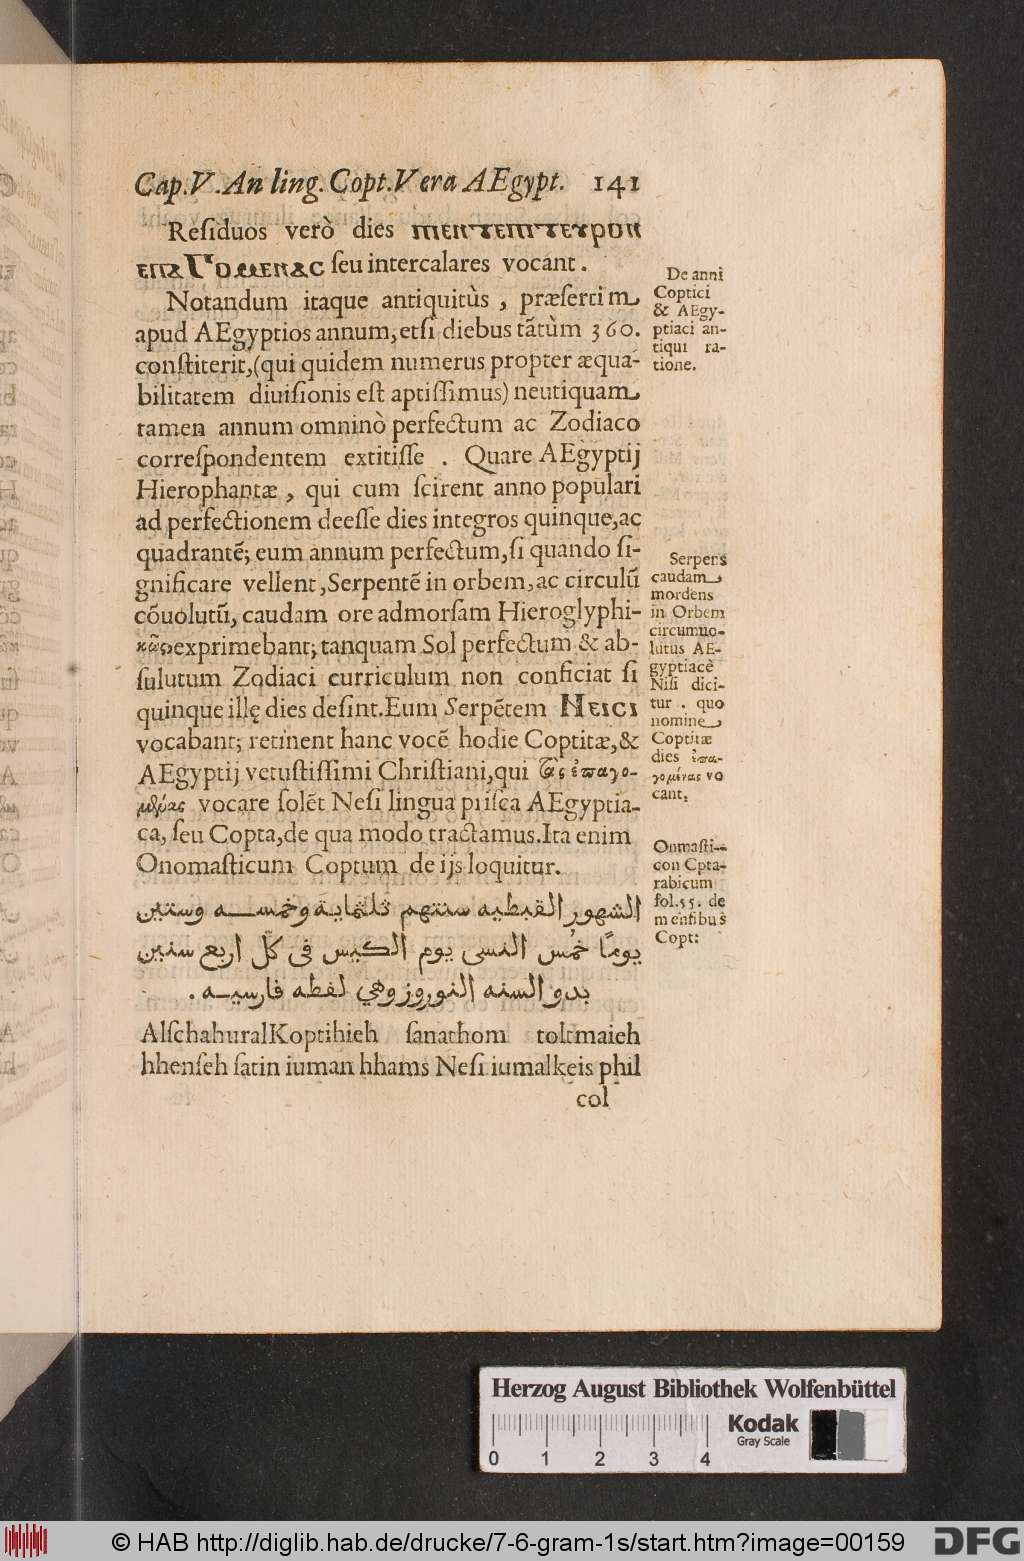 Cap.V. An ling. Copt. Vera AEgypt. 141
Reſiduos verò dies
ſeu intercalares vocant.
Notandum itaque antiquitùs, præſertim
apud AEgyptios annum, etſi diebus tãtùm 360.
conſtiterit, (qui quidem numerus propter æqua-
bilitatem diuiſionis eſt aptiſſimus) neutiquam
tamen annum omninò perfectum ac Zodiaco
correſpondentem extitiſſe. Quare AEgyptij
Hierophantæ, qui cum ſcirent anno populari
ad perfectionem deeſſe dies integros quinque, ac
quadrantẽ; eum annum perfectum, ſi quando ſi-
gnificare vellent, Serpentẽ in orbem, ac circulũ
cõuolutũ, caudam ore admorſam Hieroglyphi-
κῶς exprimebant; tanquam Sol perfectum & ab-
ſulutum Zodiaci curriculum non conficiat ſi
quinque illę dies deſint. Eum Serpẽtem Ⲛⲉⲓⲥⲓ
vocabant; retinent hanc vocẽ hodie Coptitæ, &
AEgyptij vetuſtiſſimi Chriſtiani, qui τὰς ἐπαγο-
μένας vocare ſolẽt Neſi lingua priſca AEgyptia-
ca, ſeu Copta, de qua modo tractamus. Ita enim
Onomaſticum Coptum de ijs loquitur.
الشهور القبطيه سنتهم ثلثماية وخمسه وستين
يومًا خمُس النسى يوم الكبيس فى كلّ اربع سنين
بدو السنه النوروز وهي لفطه فارسيه.
Alſchahural Koptihieh ſanathom toltmaieh
hhenſeh ſatin iuman hhams Neſi iumalkeis phil
col
De anni
Coptici
& AEgy-
ptiaci an-
tiqui ra-
tione.
Serpens
caudam
mordens
in Orbem
circumuo-
lutus AE-
gyptiacè
Niſi dici-
tur. quo
nomine
Coptitæ
dies ἐπα-
γομένας vo
cant.
Onmaſti-
con Cpta-
rabicum
fol. 55. de
menſibus
Copt:
Herzog August Bibliothek Wolfenbüttel
Kodak
Gray Scale
0 1 2 3 4
© HAB http://diglib.hab.de/drucke/7-6-gram-1s/start.htm?image=00159
DFG